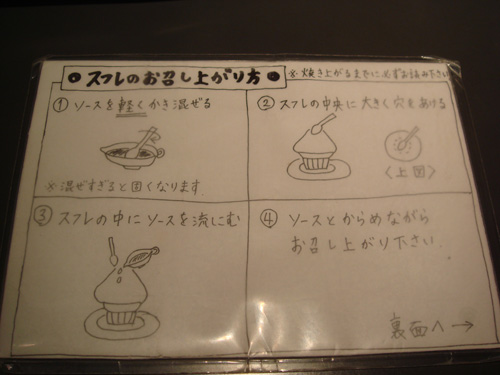 ●スフレのお召し上がり方●
※焼き上がるまでに必ずお読み下さい
① ソースを軽くかき混ぜる
※混ぜすぎると固くなります
② スフレの中央に大きく穴をあける
〈上図〉
③ スフレの中にソースを流しこむ
④ ソースとからめながら
お召し上がり下さい
裏面へ→